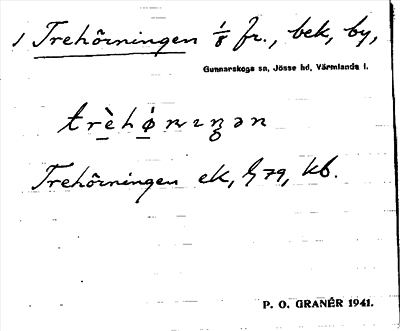 1 Trehörningen 1/8 fr., bek, by,
Gunnarskogs sn, Jösse hd, Värmlands l.
trèhǿrnıŋən
Trehörningen ek, G 79, kb.
P. O. GRANÉR 1941.